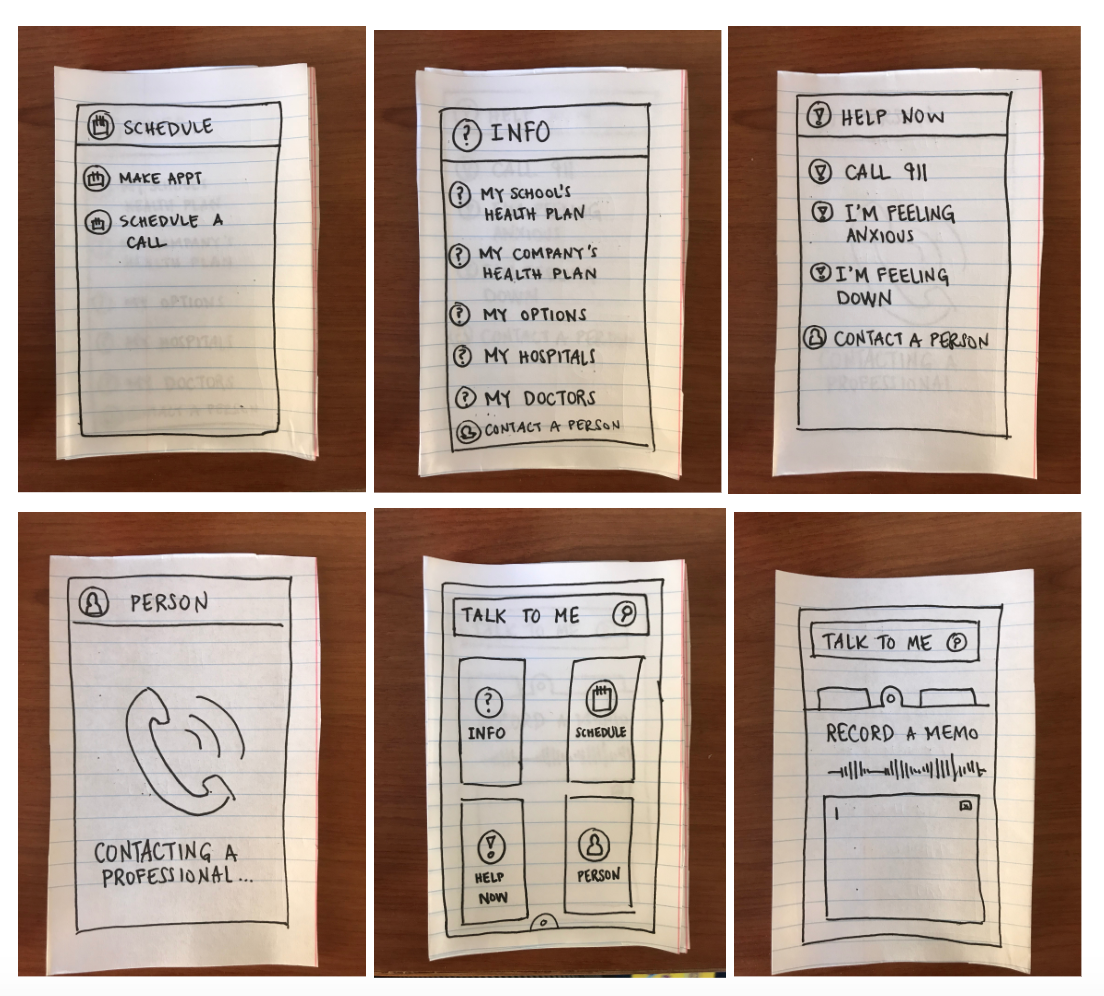 SCHEDULE
MAKE APPT
SCHEDULE A
CALL
? INFO
? MY SCHOOL'S
HEALTH PLAN
? MY COMPANY'S
HEALTH PLAN
? MY OPTIONS
? MY HOSPITALS
? MY DOCTORS
CONTACT A PERSON
! HELP NOW
! CALL 911
! I'M FEELING
ANXIOUS
! I'M FEELING
DOWN
CONTACT A PERSON
PERSON
CONTACTING A
PROFESSIONAL...
TALK TO ME
?
INFO
SCHEDULE
!
HELP
NOW
PERSON
TALK TO ME
RECORD A MEMO